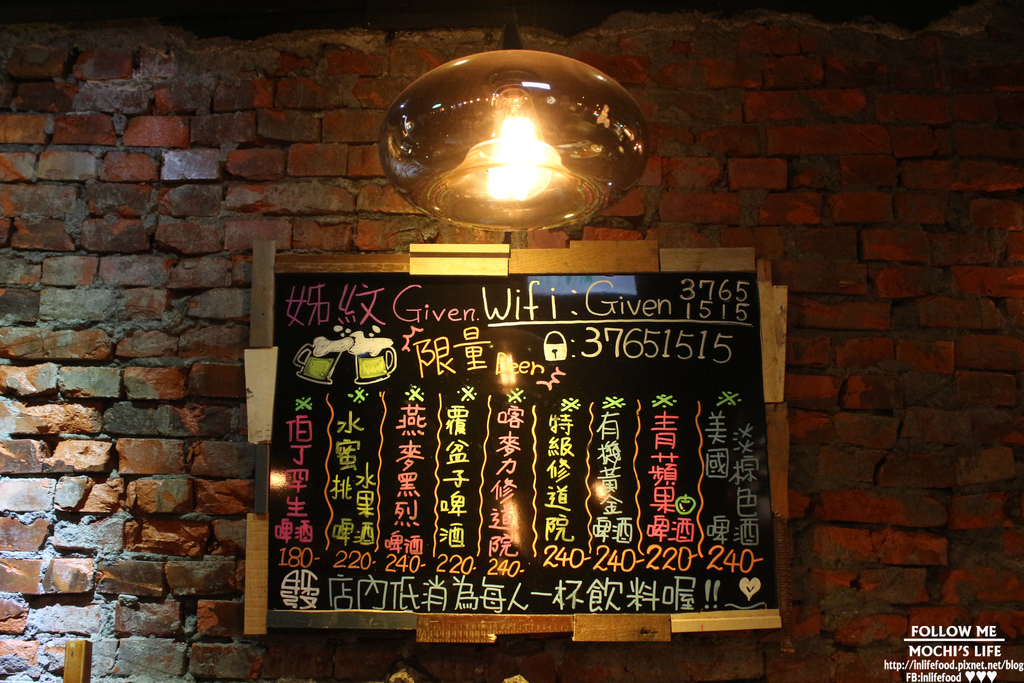 姊紋 Given. Wifi: Given 3765
1515
:37651515
限量 Beer
伯丁罕生啤酒
180-
水蜜桃水果啤酒
220-
燕麥黑烈啤酒
240-
覆盆子啤酒
220-
喀麥力修道院
240-
特級修道院
240-
有機黃金啤酒
240-
青蘋果啤酒
220-
美國淡棕色啤酒
240-
店內低消為每人一杯飲料喔!!
FOLLOW ME
MOCHI'S LIFE
http://lnlifefood.pixnet.net/blog
FB:inlifefood